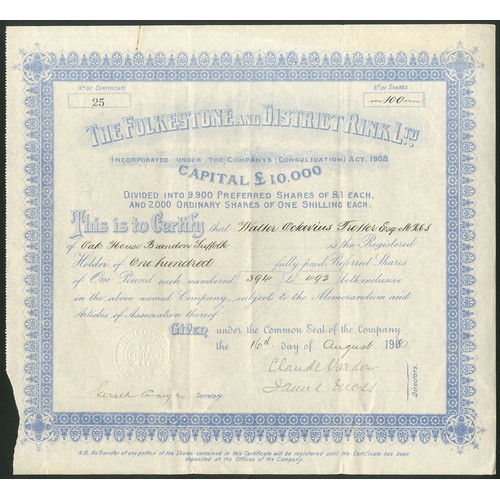 No of Certificate
25
No of Shares
100
THE FOLKESTONE AND DISTRICT RINK LTD
INCORPORATED UNDER THE COMPANY'S (CONSOLIDATION) ACT, 1908
CAPITAL £10,000
DIVIDED INTO 9,900 PREFERRED SHARES OF £1 EACH,
AND 2,000 ORDINARY SHARES OF ONE SHILLING EACH.
This is to Certify that Walter Octavius Esq M.R.C.S
of Oak House Brandon Suffolk is the Registered
Holder of One hundred fully paid Preferred Shares
of One Pound each numbered 394 to 493 both inclusive
in the above named Company, subject to the Memorandum and
Articles of Association thereof
GIVEN under the Common Seal of the Company
the 16th day of August 1910
Claude
James
Directors.
Secretary.
N.B. No Transfer of any portion of the Shares contained in this Certificate will be registered until the Certificate has been
deposited at the Offices of the Company.